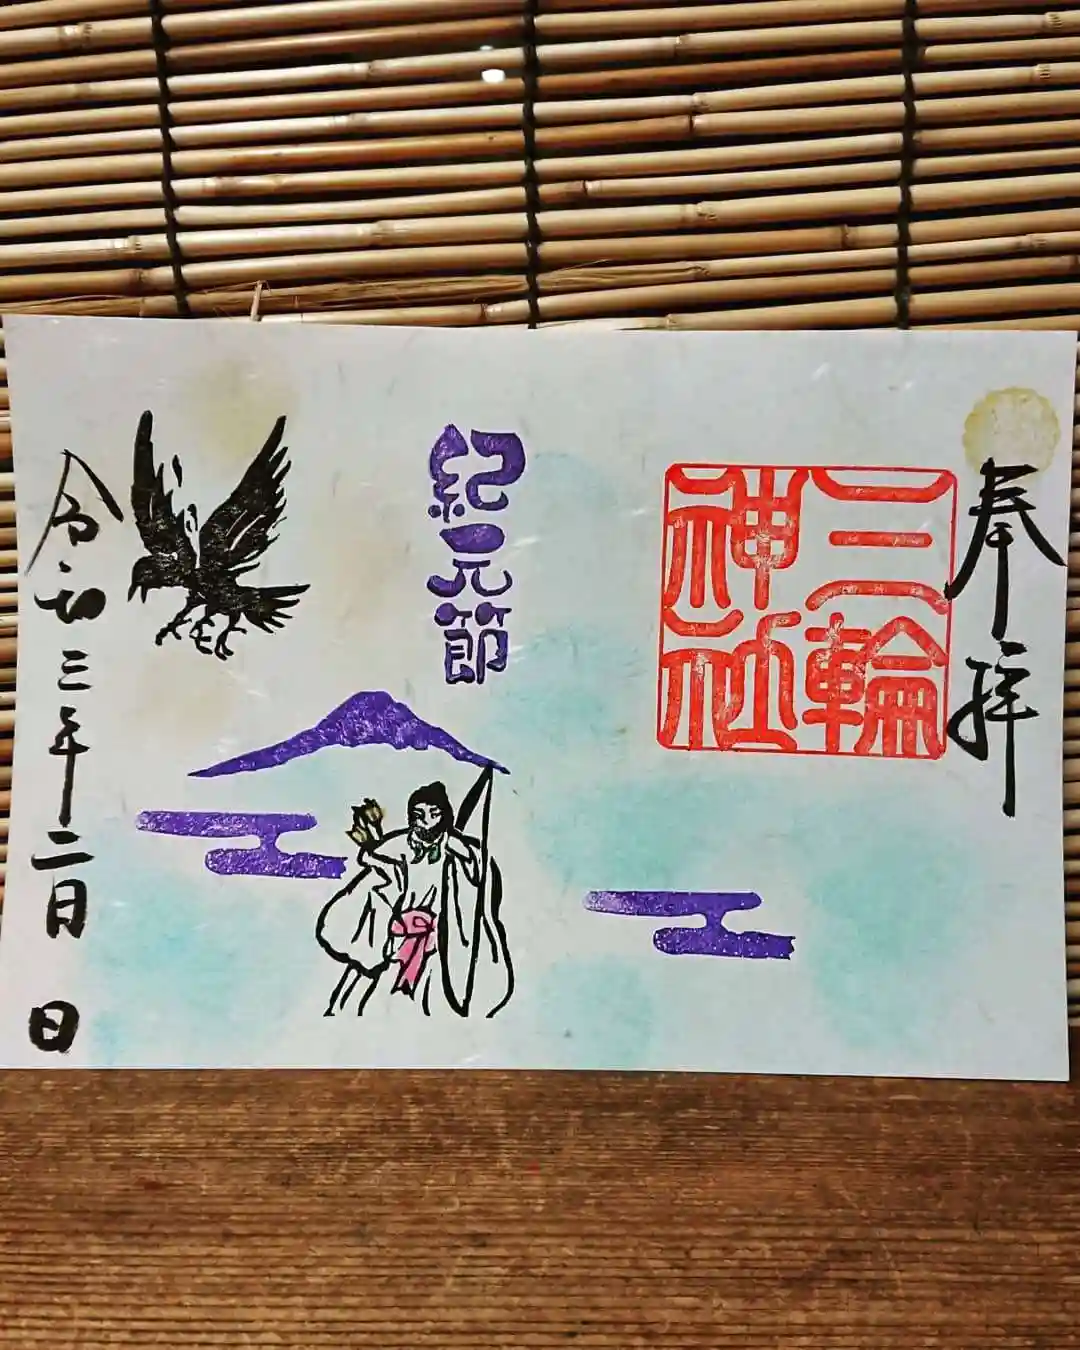 奉拝
三輪
神社
紀元節
令和三年二月 日